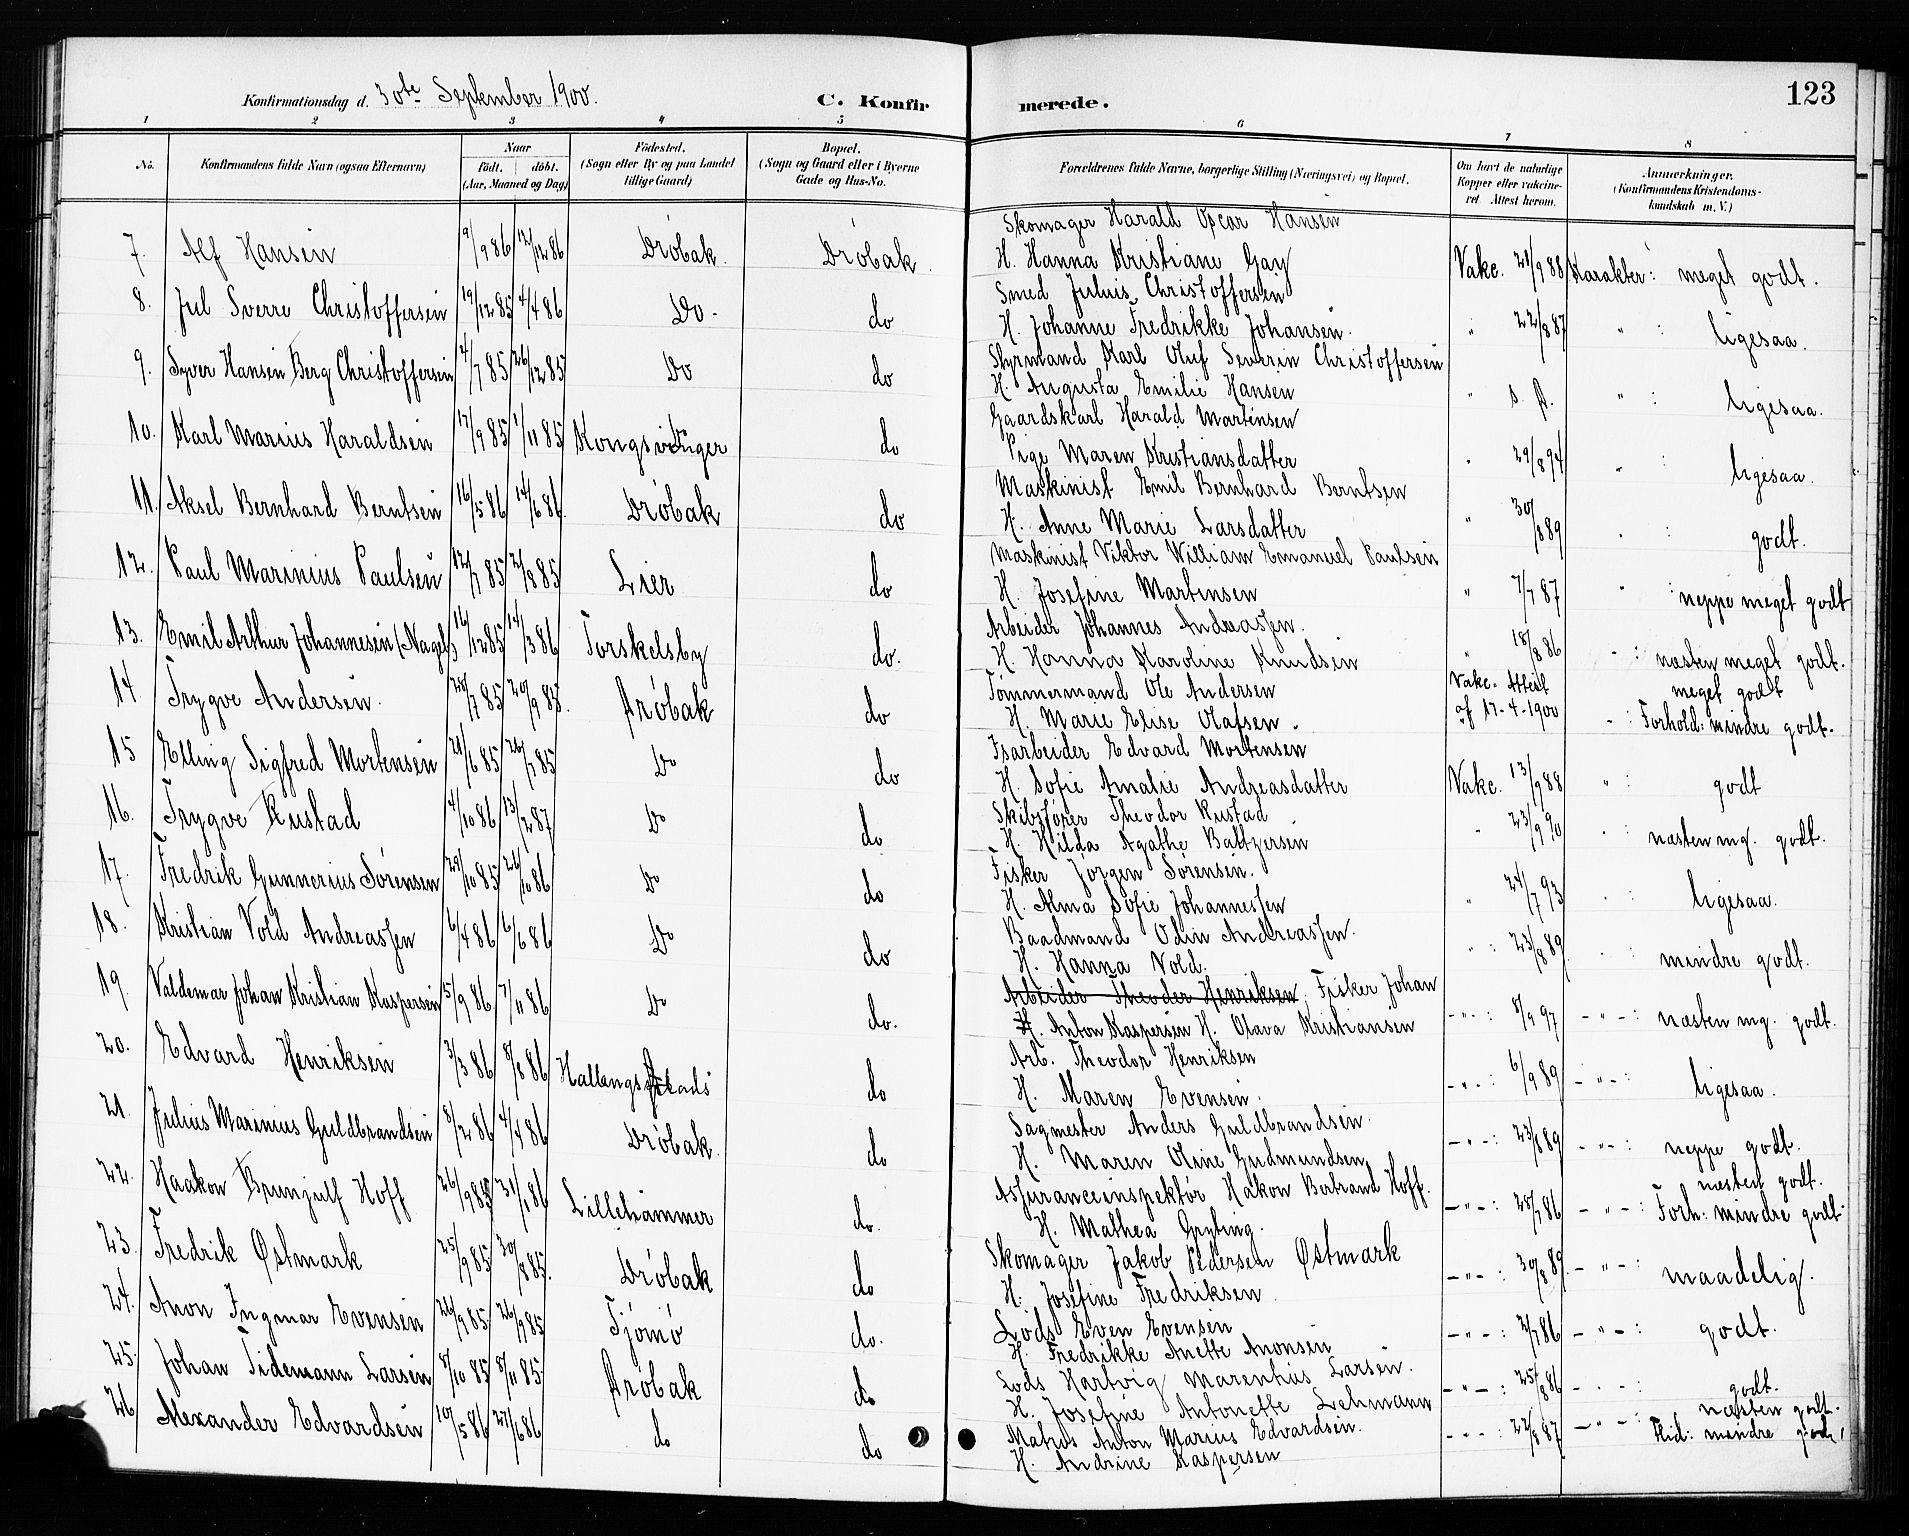 Konfirmationsdag d. 30te September 1900.
C. Konfirmerede.
123
1 2 3 4 5 6 7 8
No. Konfirmandens fulde Navn (ogsaa Efternavn) Naar födt. döbt. (Aar, Maaned og Dag) Födested. (Sogn eller By og paa Landet tillige Gaard) Bopæl. (Sogn og Gaard eller i Byerne Gade og Hus-No. Forældrenes fulde Navne, borgerlige Stilling (Næringsvei) og Bopæl. Om havt de naturlige Kopper eller vakcineret. Attest herom. Anmerkninger. (Konfirmandens Kristendomskundskab m. V.)
7. Alf Hansen 9/9 86 12/12 86 Drøbak Drøbak. Skomager Harald Oscar Hansen
H. Hanna Kristiane Gay Vakc. 21/9 88 Karakter: meget godt.
8. Jul Sverre Christoffersen 19/12 85 4/4 86 Do. do Smed Julius Christoffersen
H. Johanne Fredrikke Johansen. " 22/8 87 " : ligesaa.
9. Syver Hansen Berg Christoffersen 4/7 85 26/12 85 Do do Styrmand Karl Oluf Severin Christoffersen
H. Augusta Emilie Hansen " s. d. " : ligesaa.
10. Karl Marius Haraldsen 17/9 85 1/11 85 Kongsvinger do Gaardskarl Harald Martinsen
Pige Maren Kristiansdatter " 29/8 94 " : ligesaa.
11. Aksel Bernhard Berntsen 16/5 86 14/6 86. Drøbak do Maskinist Emil Bernhard Berntsen
H. Anne Marie Larsdatter " 30/8 89 " : godt.
12. Paul Marinius Paulsen 12/7 85 2/8 85 Lier do Maskinist Viktor William Emanuel Paulsen
H. Josefine Martinsen " 7/7 87 " : neppe meget godt
13. Emil Arthur Johannesen (Nagel) 16/12 85 14/3 86 Torskelsby do. Arbeider Johannes Andreassen.
H. Hanna Karoline Knudsen " 18/8 86 " : næsten meget godt.
14. Trygve Andersen. 28/7 85 20/9 85. Drøbak do Tømmermand Ole Andersen Vakc. Attest meget godt
H. Marie Elise Olafsen. af 17-4-1900 " : Forhold: mindre godt.
15 Elling Sigfred Mortensen 21/6 85 26/7 85 Do do Isarbeider Edvard Mortensen
H. Sofie Amalie Andreasdatter Vakc. 13/9 88 " : godt
16. Trygve Rustad 4/10 86 13/2 87 Do do Skibsfører Theodor Rustad
H. Hilda Agathe Baltzersen " 23/9 90 " : næsten mg. godt.
17. Fredrik Gunnerius Sørensen 29/10 85 24/10 86 Do do Fisker Jørgen Sørensen.
H. Alma Sofie Johannessen " 24/7 93 " : ligesaa.
18. Kristian Vold Andreassen 6/4 86 6/6 86 Do do Baadmand Odin Andreassen.
H. Hanna Vold. " : 23/8 89. " : mindre godt.
19. Valdemar Johan Kristian Kaspersen 5/9 86 7/11 86 Do do. Arbeider Theodor Henriksen. Fisker Johan
H. Anton Kaspersen H. Olava Kristiansen - " - : 8/9 97 - " - : næsten mg. godt.
20. Edvard Henriksen 3/3 86 8/8 86 Hallangs do Arb. Theodor Henriksen
H. Maren Evensen. - " - : 6/9 89 - " - : ligesaa.
21. Julius Marinius Guldbrandsen 8/2 86 4/4 86 Drøbak. do Sagmester Anders Guldbrandsen
H. Maren Oline Gudmundsen. - " - : 23/8 89 - " - : neppe godt.
22. Haakon Brunjulf Hoff 26/9 85 31/1 86 Lillehammer do. Assuranceinspektør Hakon Bertrand Hoff. næsten godt.
H. Mathea Gryting. - " - : 28/7 86 - " - : Forh: mindre godt.
23. Fredrik Østmark 25/9 85 30/8 85. Drøbak do Skomager Jakob Pedersen Østmark
H. Josefine Fredriksen. - " - : 30/8 89. - " - : maadelig.
24. Anon Ingmar Evensen 20/9 85 26/9 85 Tjømø do. Lods Even Evensen
H. Fredrikke Anette Anonsen - " - : 2/7 86 - " - : godt.
25. Johan Tidemann Larsen 8/10 85 8/11 85. Drøbak do Lods Hartvig Marentius Larsen.
H. Josefine Antonette Lehmann - " - : 25/8 86 - " - : godt.
26 Alexander Edvardsen 10/5 86 27/6 86 do do Matros Anton Marius Edvardsen. næsten godt.
H. Andrine Kaspersen - " - : 22/8 87 - " - : Flid: mindre godt